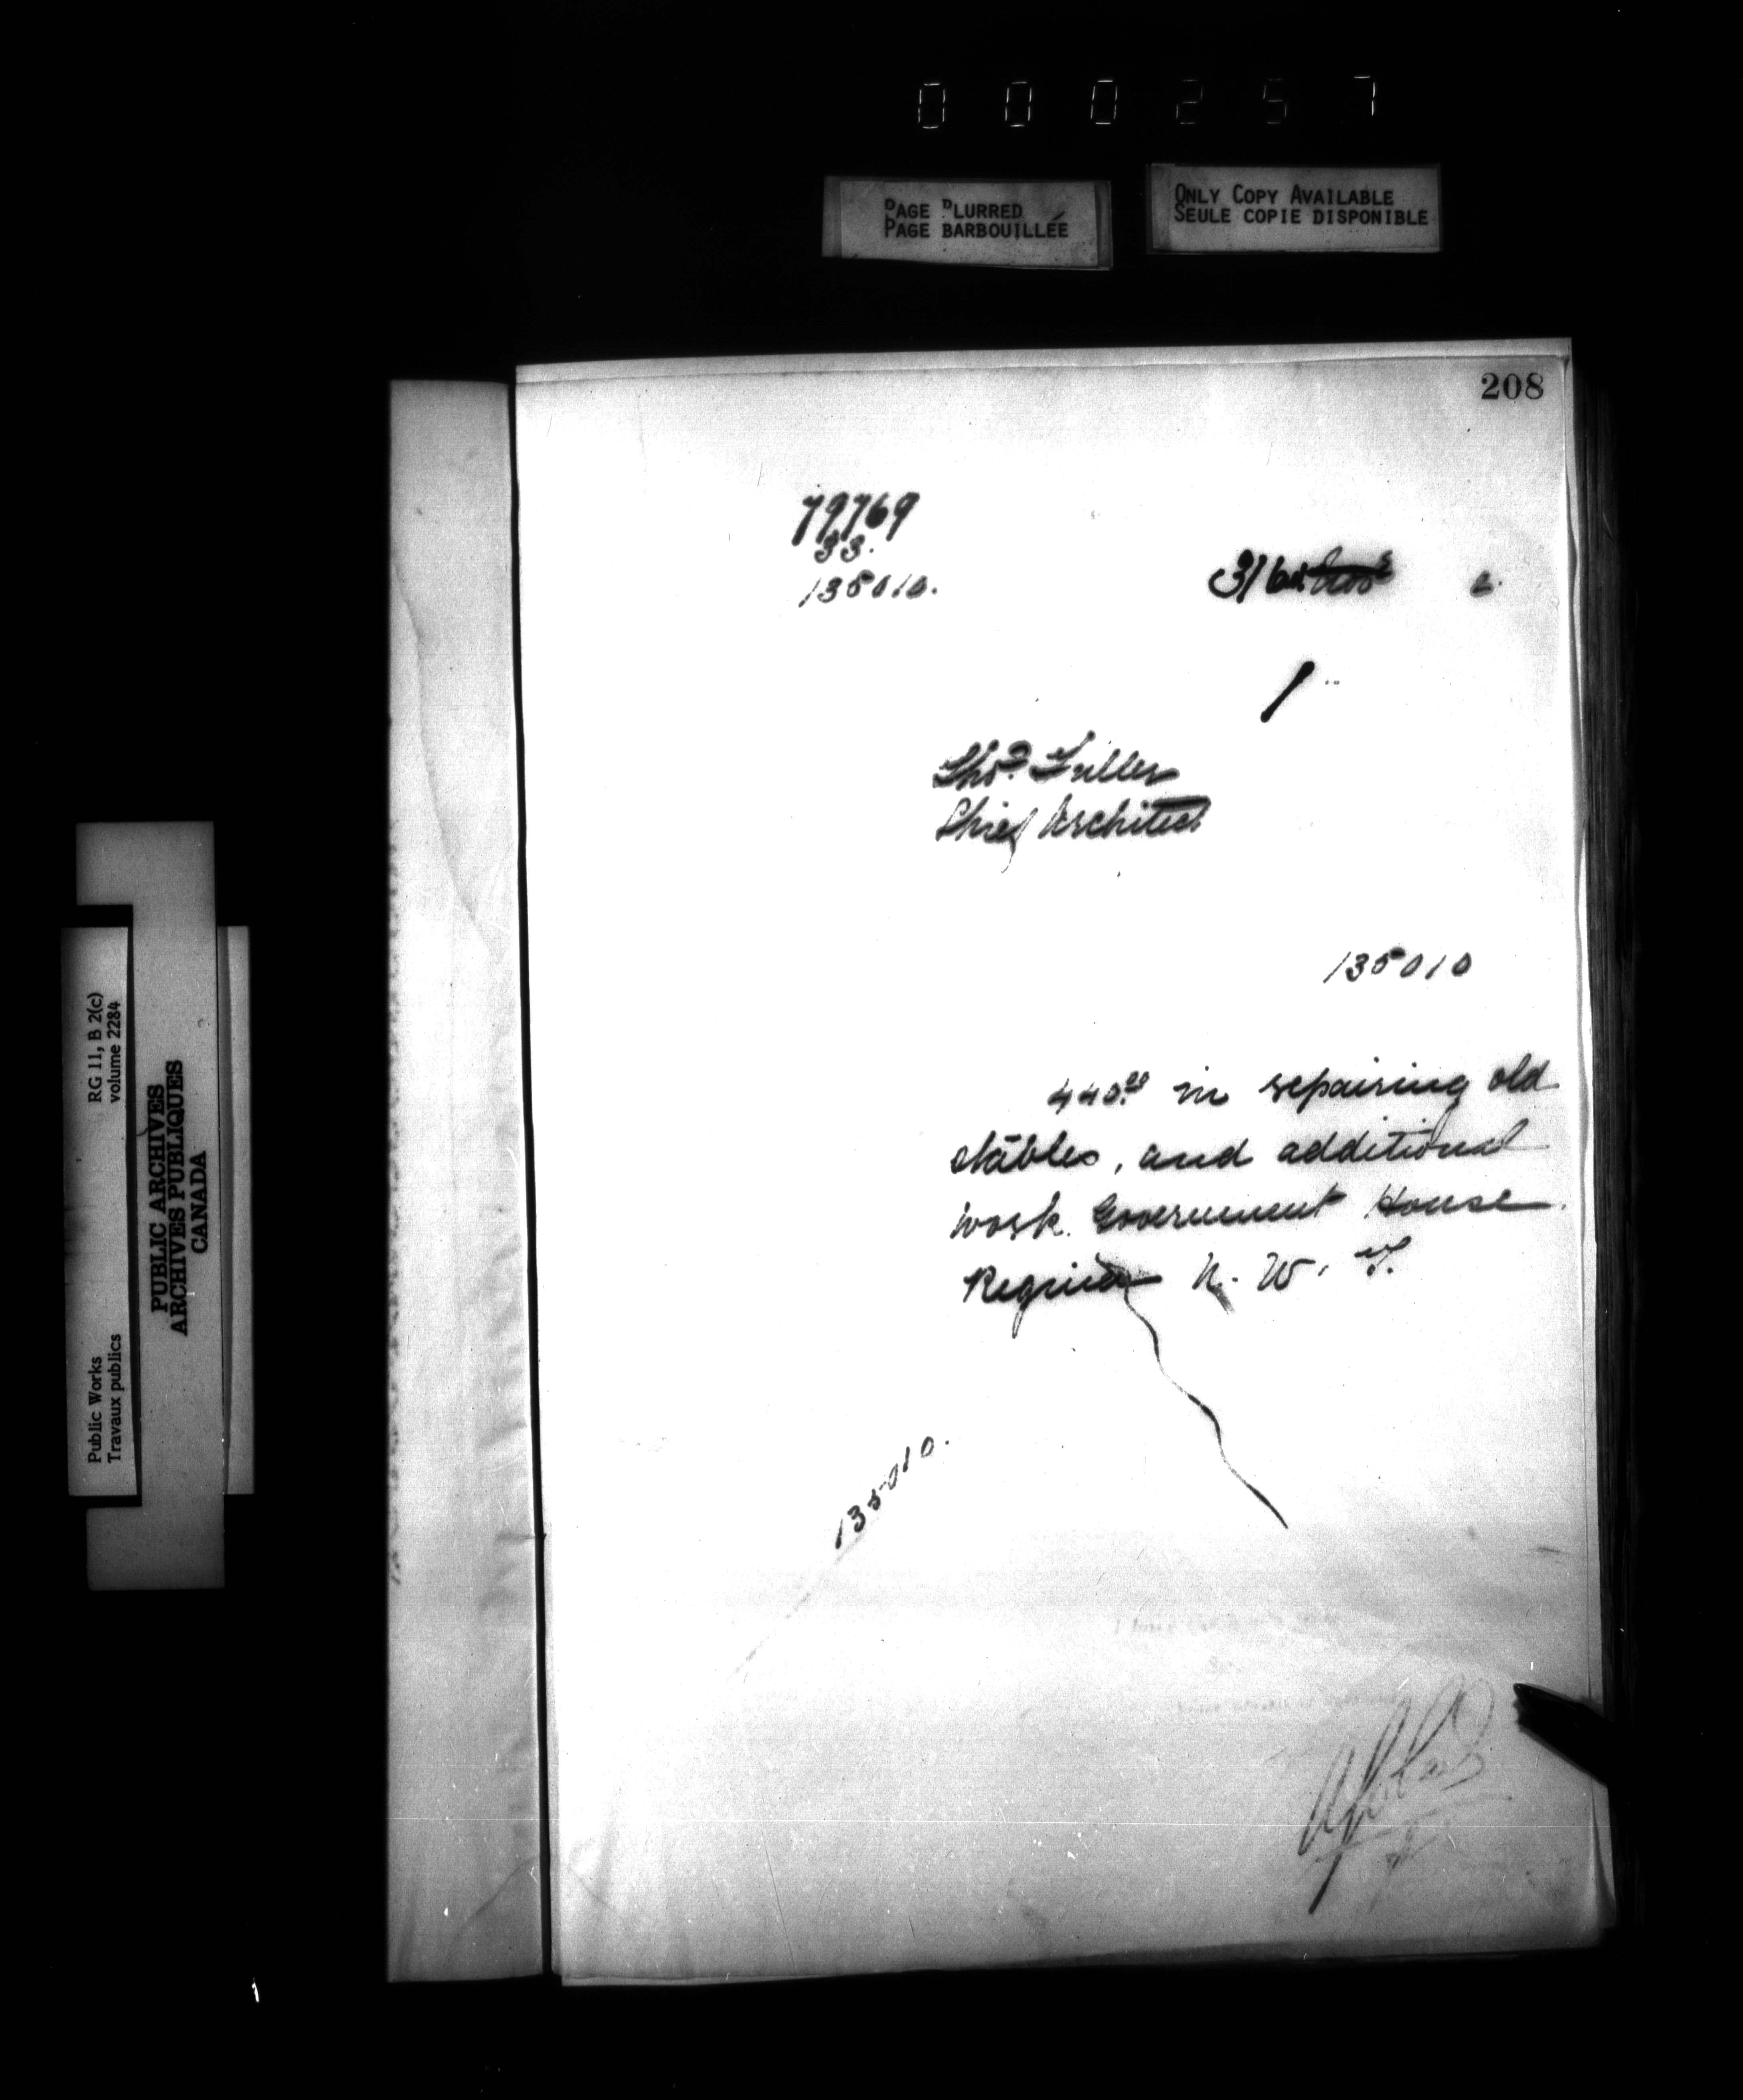 000257
PAGE BLURRED
PAGE BARBOUILLÉE
ONLY COPY AVAILABLE
SEULE COPIE DISPONIBLE
208
79769
33.
135010.
31
2.
Thos. Fuller
Chief Architect
135010
440.00 in repairing old
stables, and additional
work. Government House.
Regina N. W. T.
135010.
RG 11, B 2(c)
volume 2284
Public Works
Travaux publics
PUBLIC ARCHIVES
ARCHIVES PUBLIQUES
CANADA